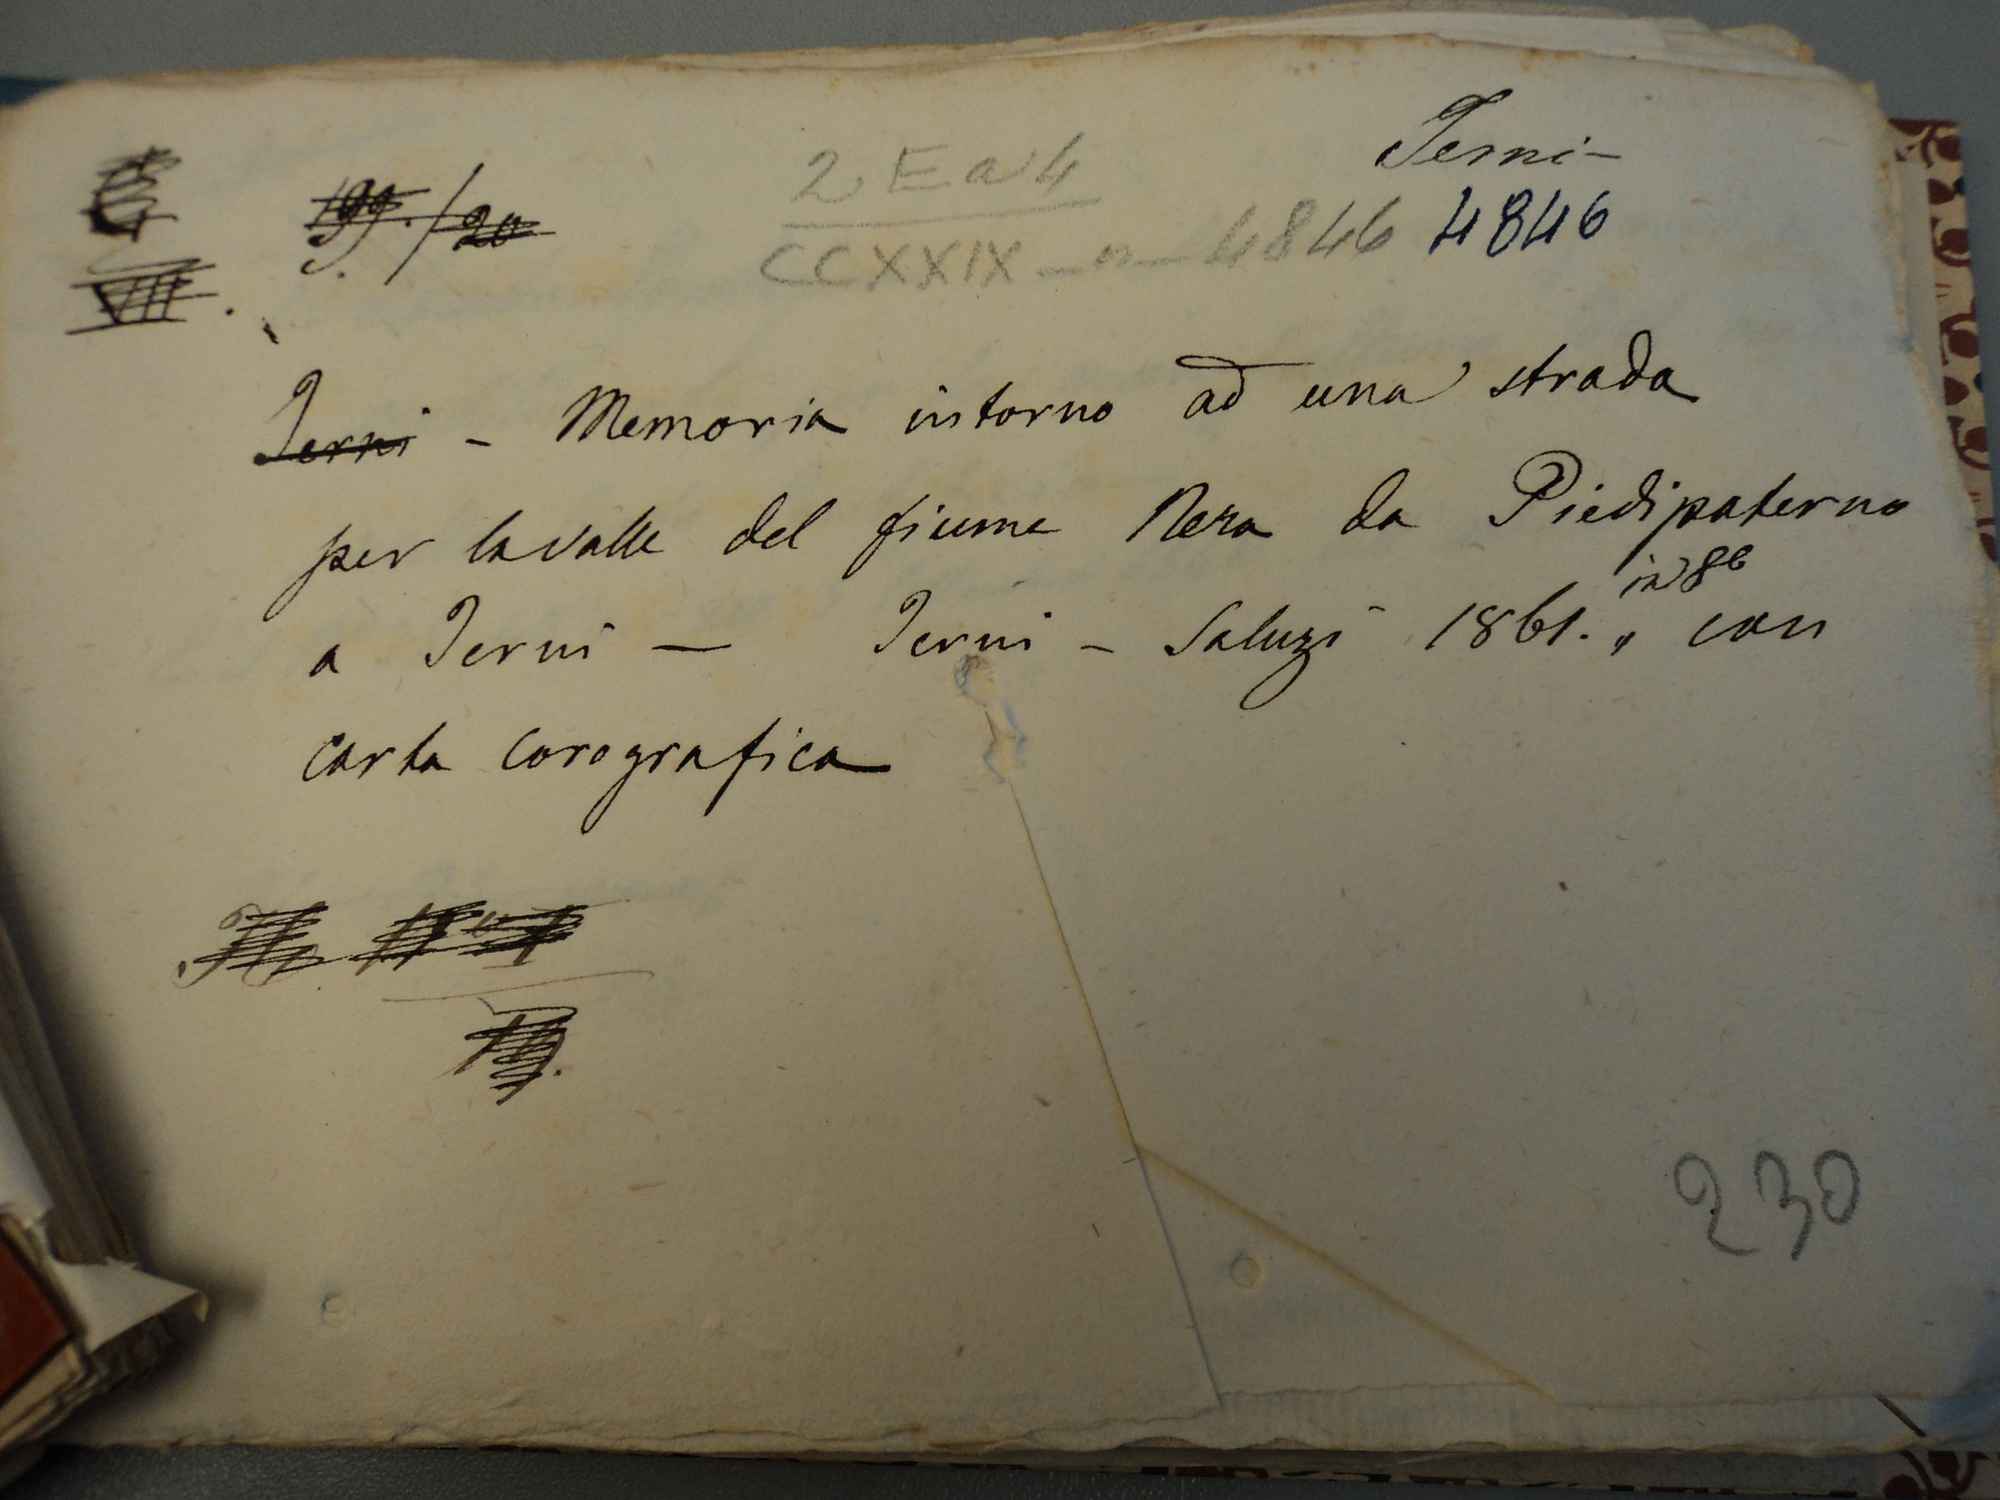 Terni -
2 E a 4
199./20
CCXXIX - n - 4846 4846
VIII.
Terni - Memoria intorno ad una strada
per la valle del fiume Nera da Piedipaterno
in 8º
a Terni — Terni - Saluzi 1861. „ con
carta corografica
230